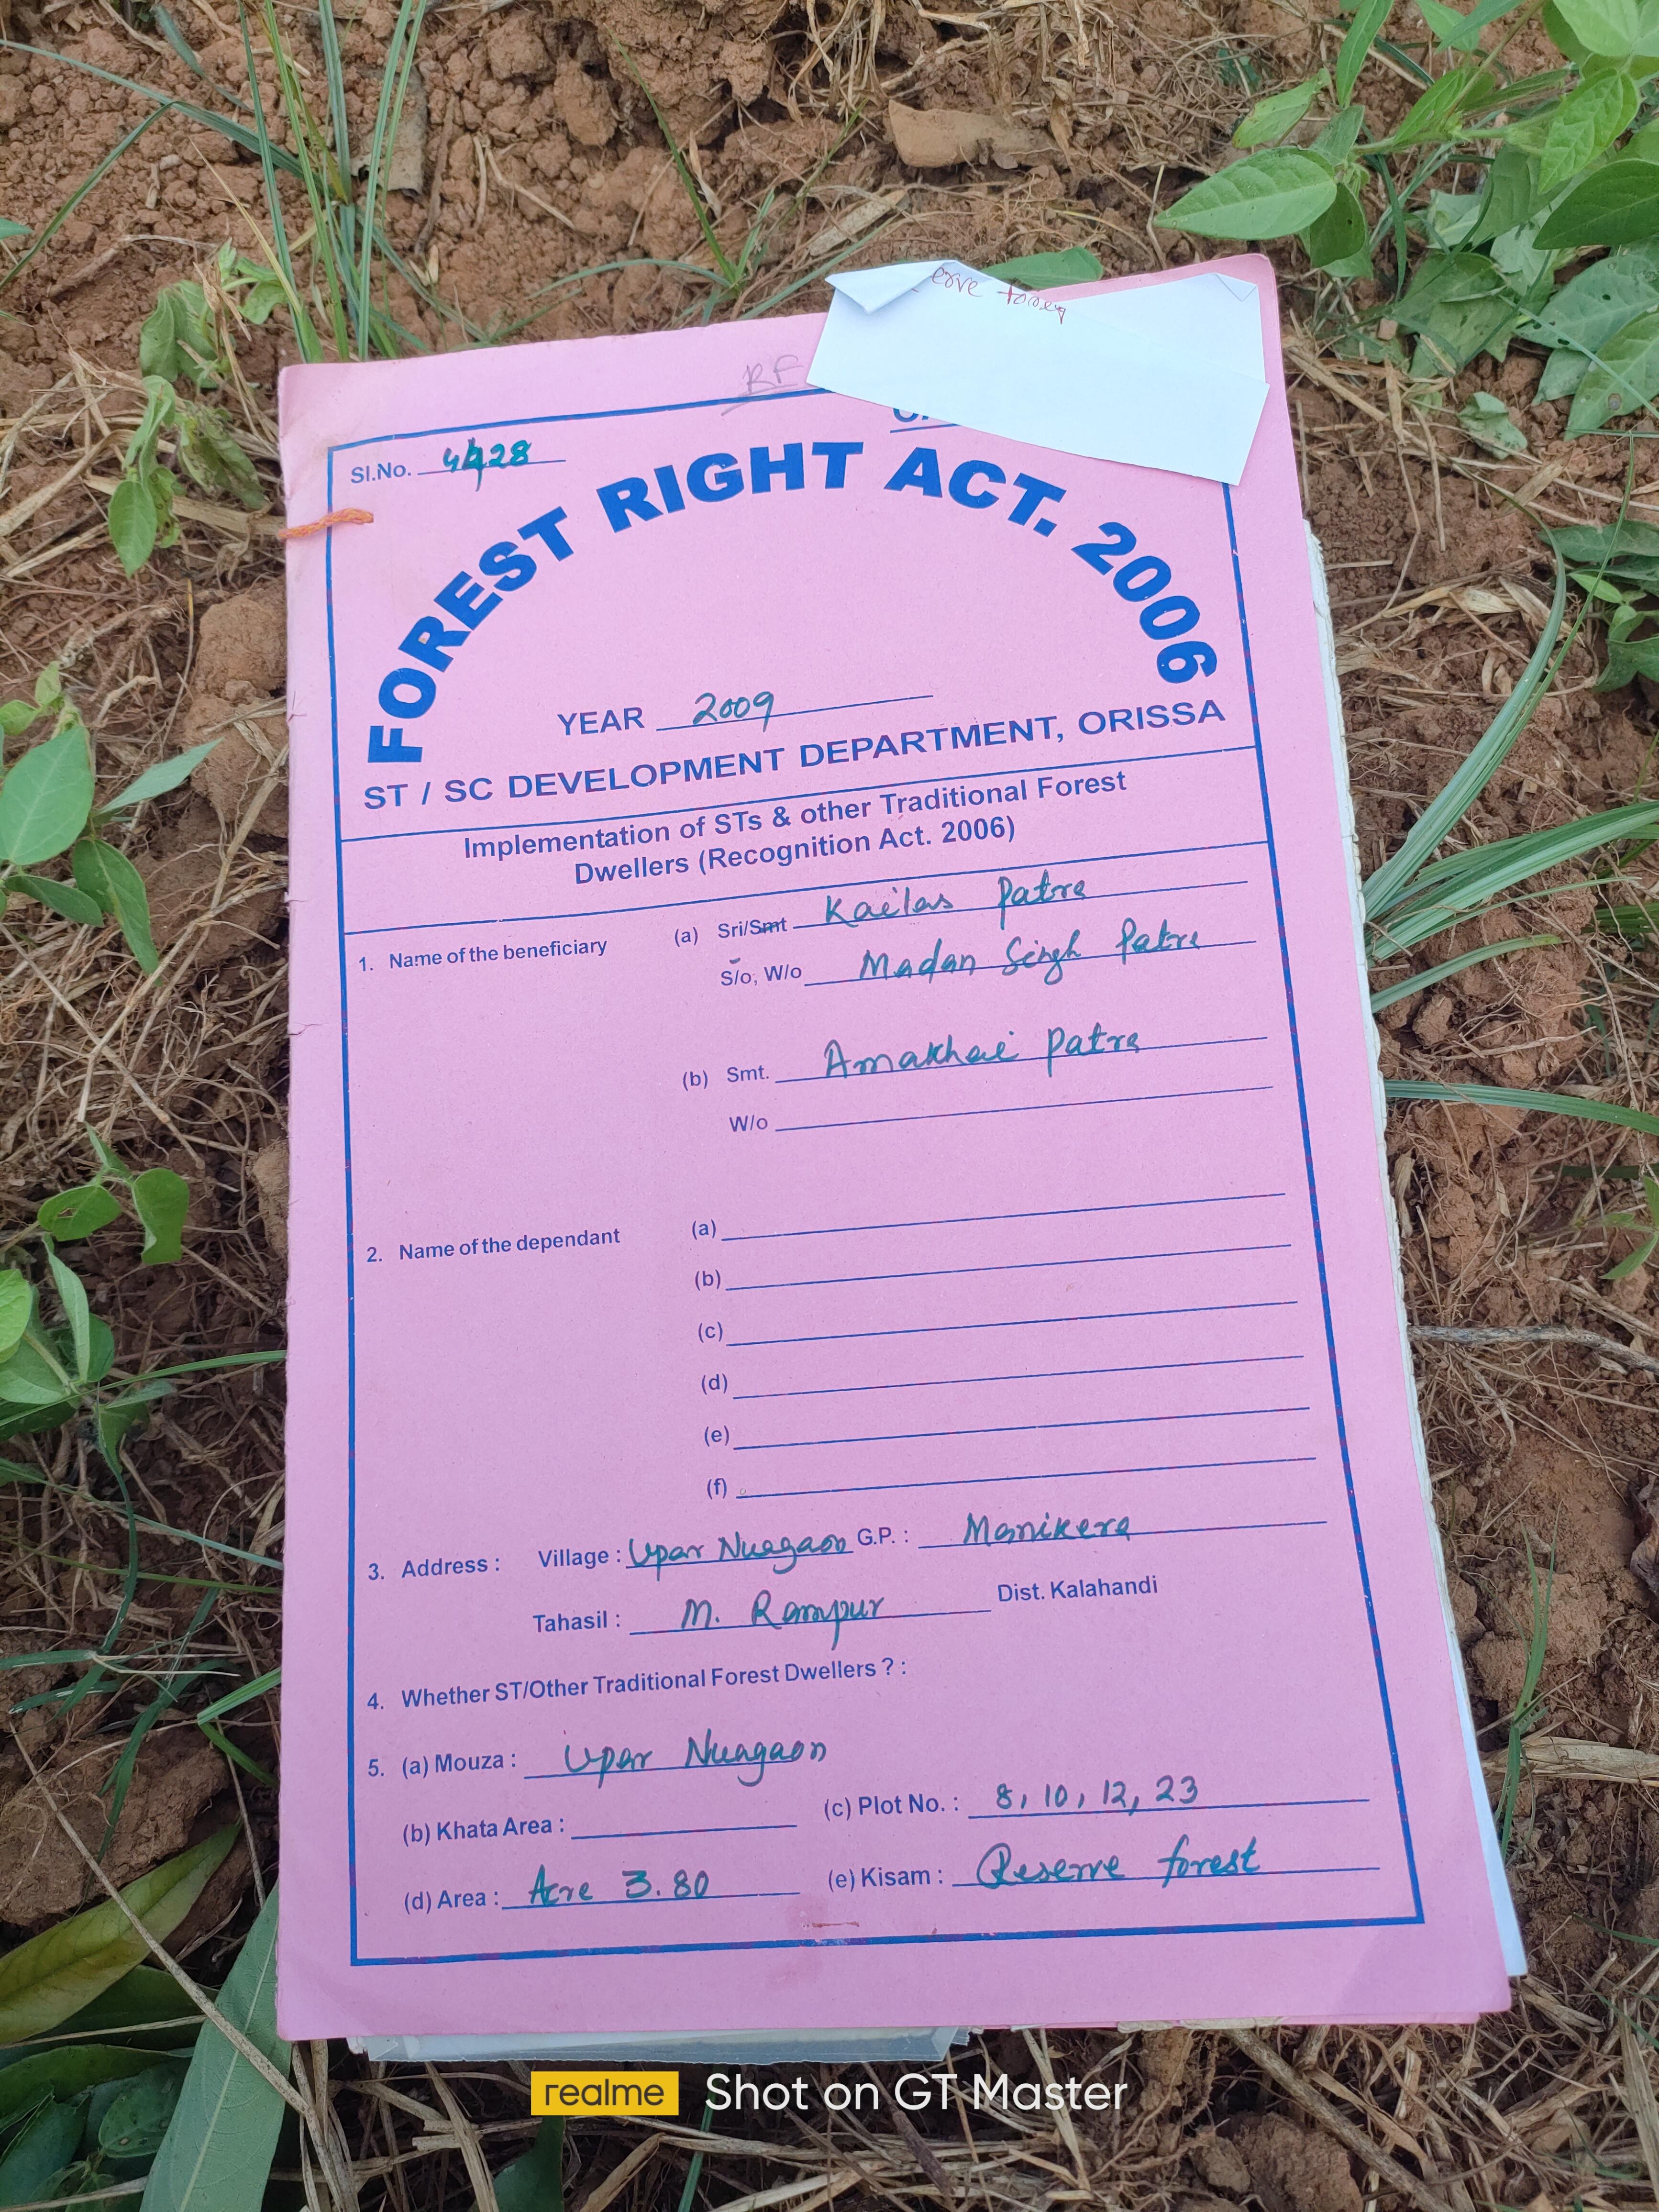 erve
RF
Sl.No. 4428
FOREST RIGHT ACT. 2006
YEAR 2009
ST / SC DEVELOPMENT DEPARTMENT, ORISSA
Implementation of STs & other Traditional Forest
Dwellers (Recognition Act. 2006)
1. Name of the beneficiary (a) Sri/Smt Kailas Patra
S/o, W/o Madan Singh Patra
(b) Smt. Amakhai Patra
W/o
2. Name of the dependant (a)
(b)
(c)
(d)
(e)
(f)
3. Address : Village : Upar Nuagaon G.P. : Manikera
Tahasil : M. Rampur Dist. Kalahandi
4. Whether ST/Other Traditional Forest Dwellers ? :
5. (a) Mouza : Upar Nuagaon
(b) Khata Area : (c) Plot No. : 8, 10, 12, 23
(d) Area : Acre 3.80 (e) Kisam : Reserve forest
realme Shot on GT Master